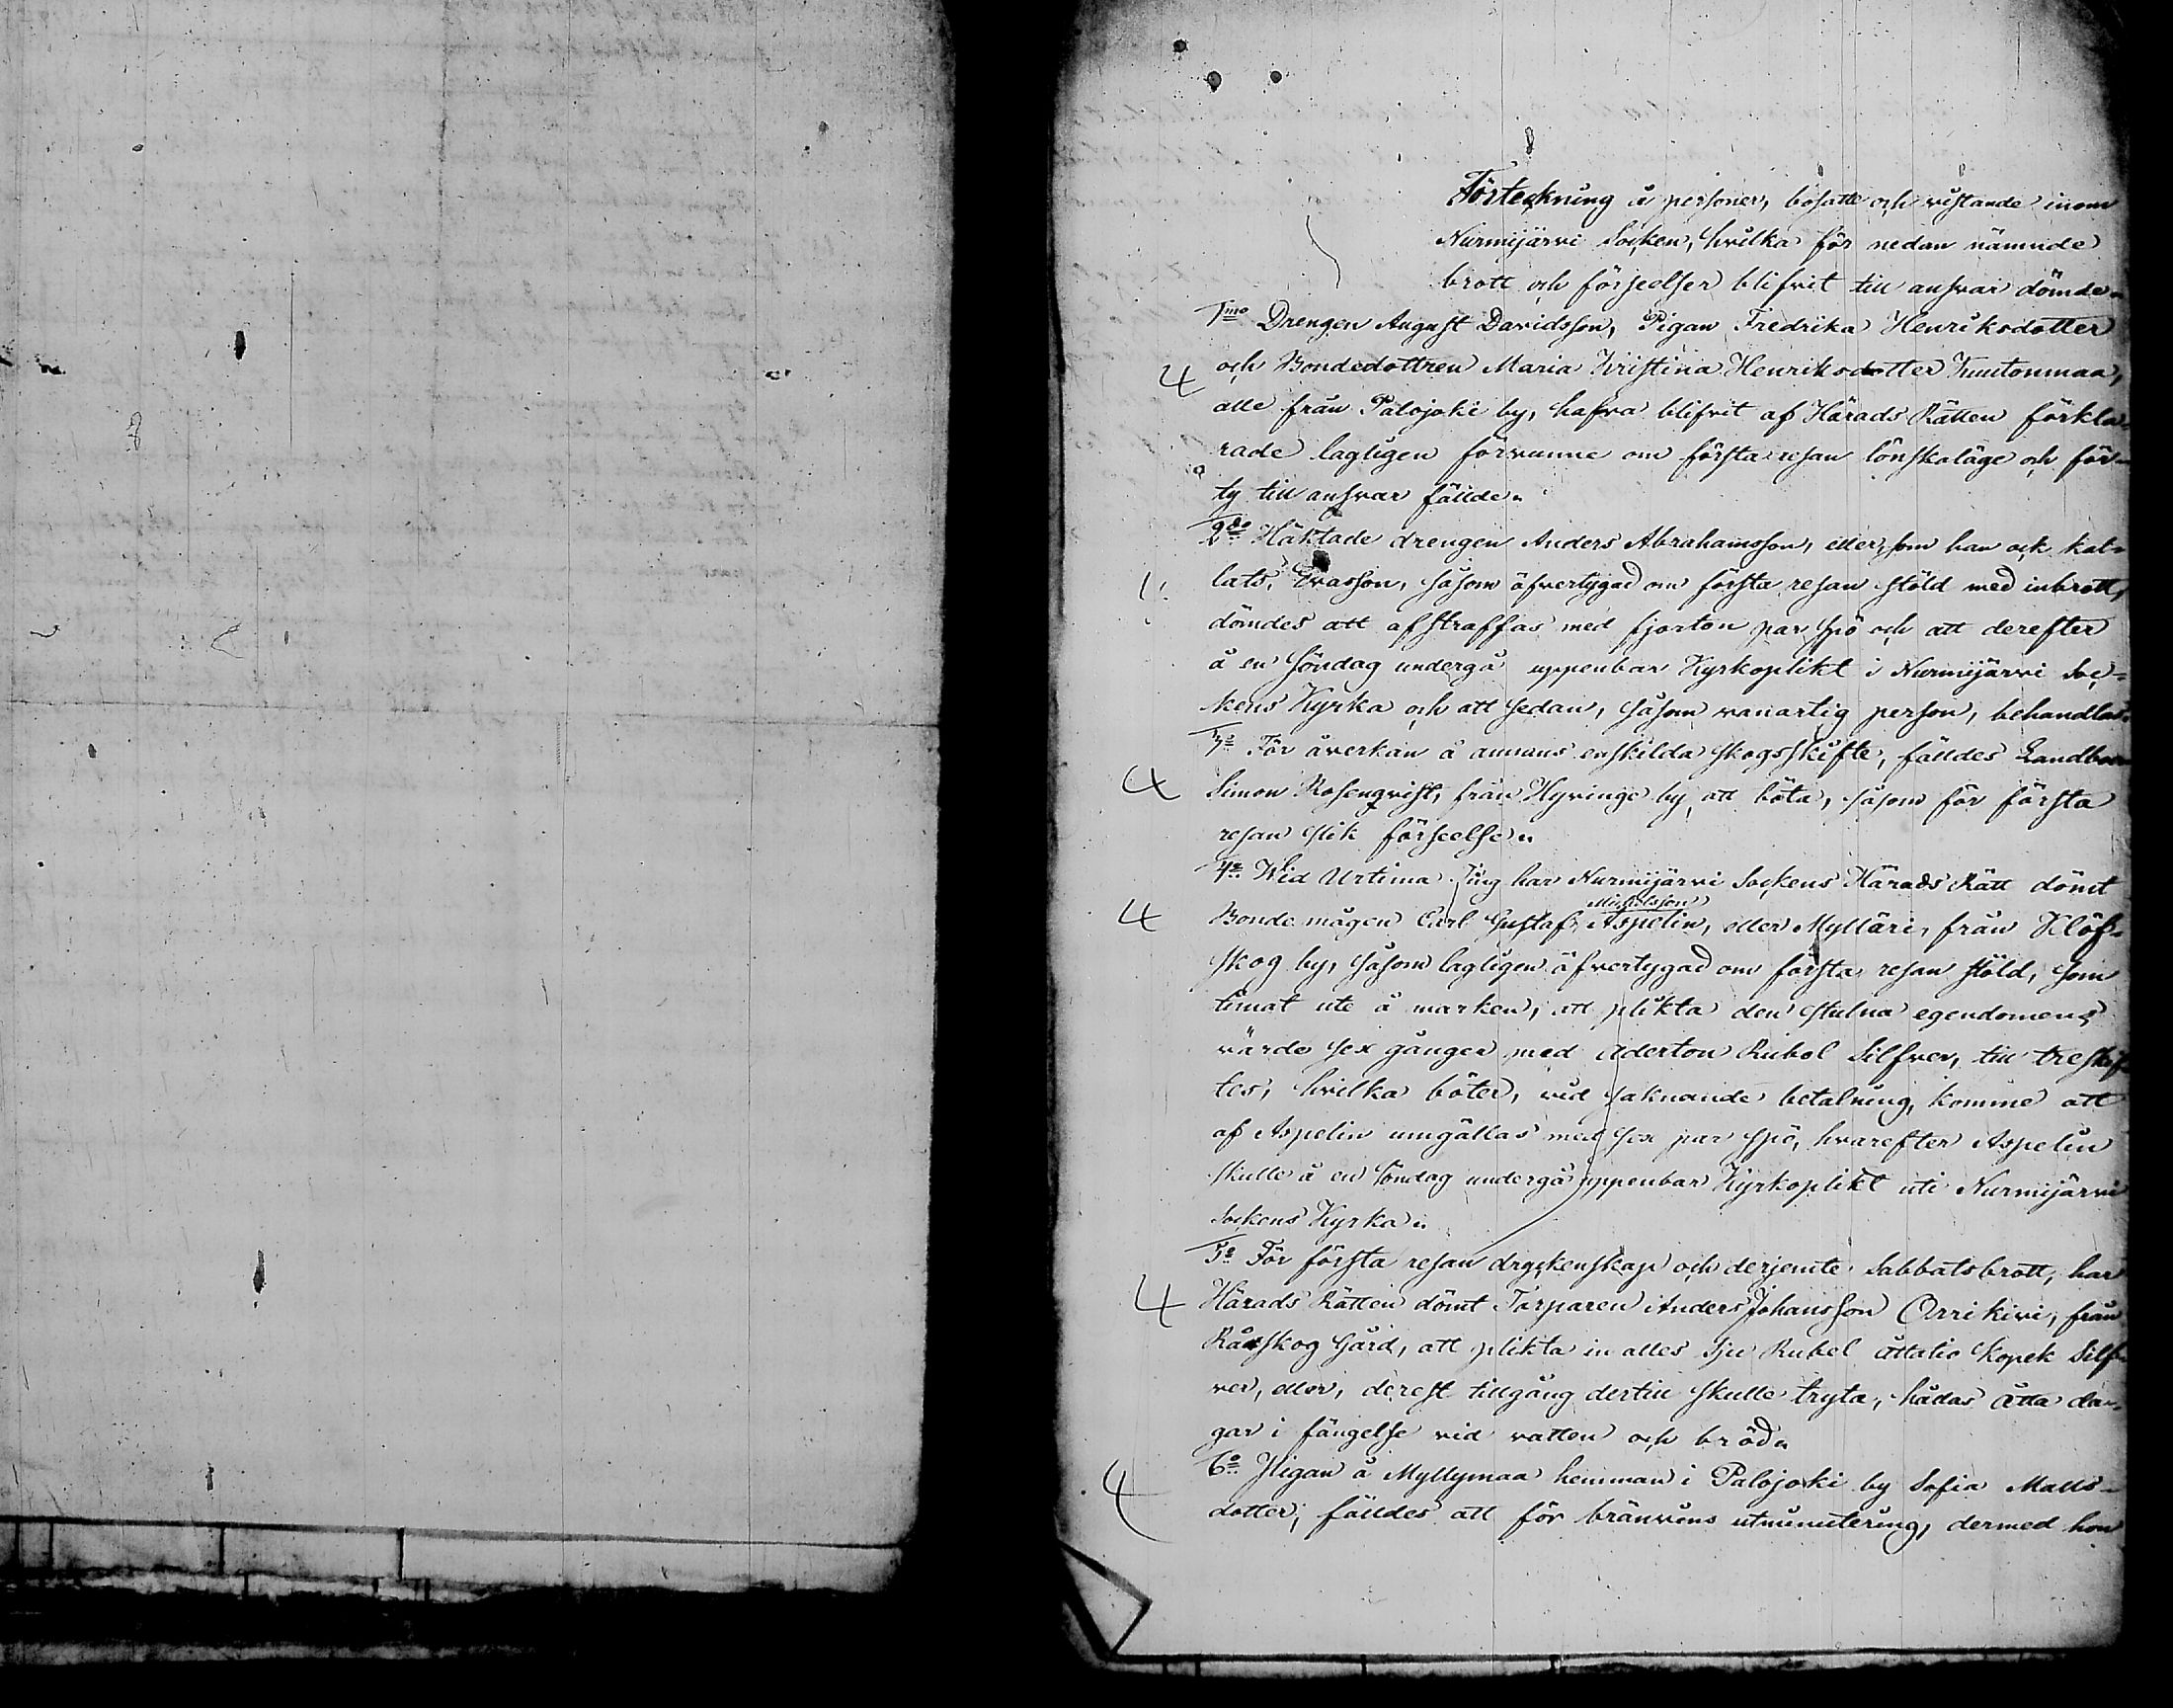 Förteckning å personer, bosatte och vistande inom
Nurmijärvi Socken, hvilka för nedan nämnde
brott och förseelser blifvit till ansvar dömde.
1mo Drengen August Davidsson, Pigan Fredrika Henriksdotter
och Bondedottren Maria Kristina Henriksdotter Kuutonmaa,
4
alle från Palojoki by, hafva blifvit af Härads Rätten förkla-
rade lagligen förvunne om första resan lönskaläge och för-
ty till ansvar fällde.
2do Häktade drengen Anders Abrahamsson, eller, som han ock kal-
lats, Evasson, såsom öfvertygad om första resan stöld med inbrott,
dömdes att afstraffas med fjorton par spö och att derefter
å en söndag undergå uppenbar Kyrkoplikt i Nurmijärvi Soc-
kens Kyrka och att sedan, såsom vanartig person, behandlas.
3o För åverkan å annans enskilda skogsskifte, fälldes Landbon
4 Simon Rosenqvist, från Hyvinge by, att böta, såsom för första
resan slik förseelse.
4o Wid Urtima Ting har Nurmijärvi Sockens Härads Rätt dömt
Michelsson
4 Bonde mågen Carl Gustaf Aspelin, eller Mylläri, från Klöf-
skog by, såsom lagligen öfvertygad om första resan stöld, som
timat ute å marken, att plikta den stulna egendomens
värde sex gånger med Aderton Rubel Silfver, till treskif-
tes; hvilka böter, vid saknande betalning, komme att
af Aspelin umgällas med sex par spö, hvarefter Aspelin
skulle å en söndag undergå uppenbar Kyrkoplikt uti Nurmijärvi
Sockens Kyrka.
5o För första resan dryckenskap och derjemte Sabbatsbrott, har
4 Härads Rätten dömt Torparen Anders Johansson Orrikivi, från
Råskog Gård, att plikta in alles Sju Rubel åttatio kopek Silf-
ver, eller, derest tillgång dertill skulle tryta, hållas Åtta da-
gar i fängelse vid vatten och bröd.
4 6o Pigan å Myllymaa hemman i Palojoki by Sofia Matts-
dotter; fälldes att för bränvins utminutering, dermed hon